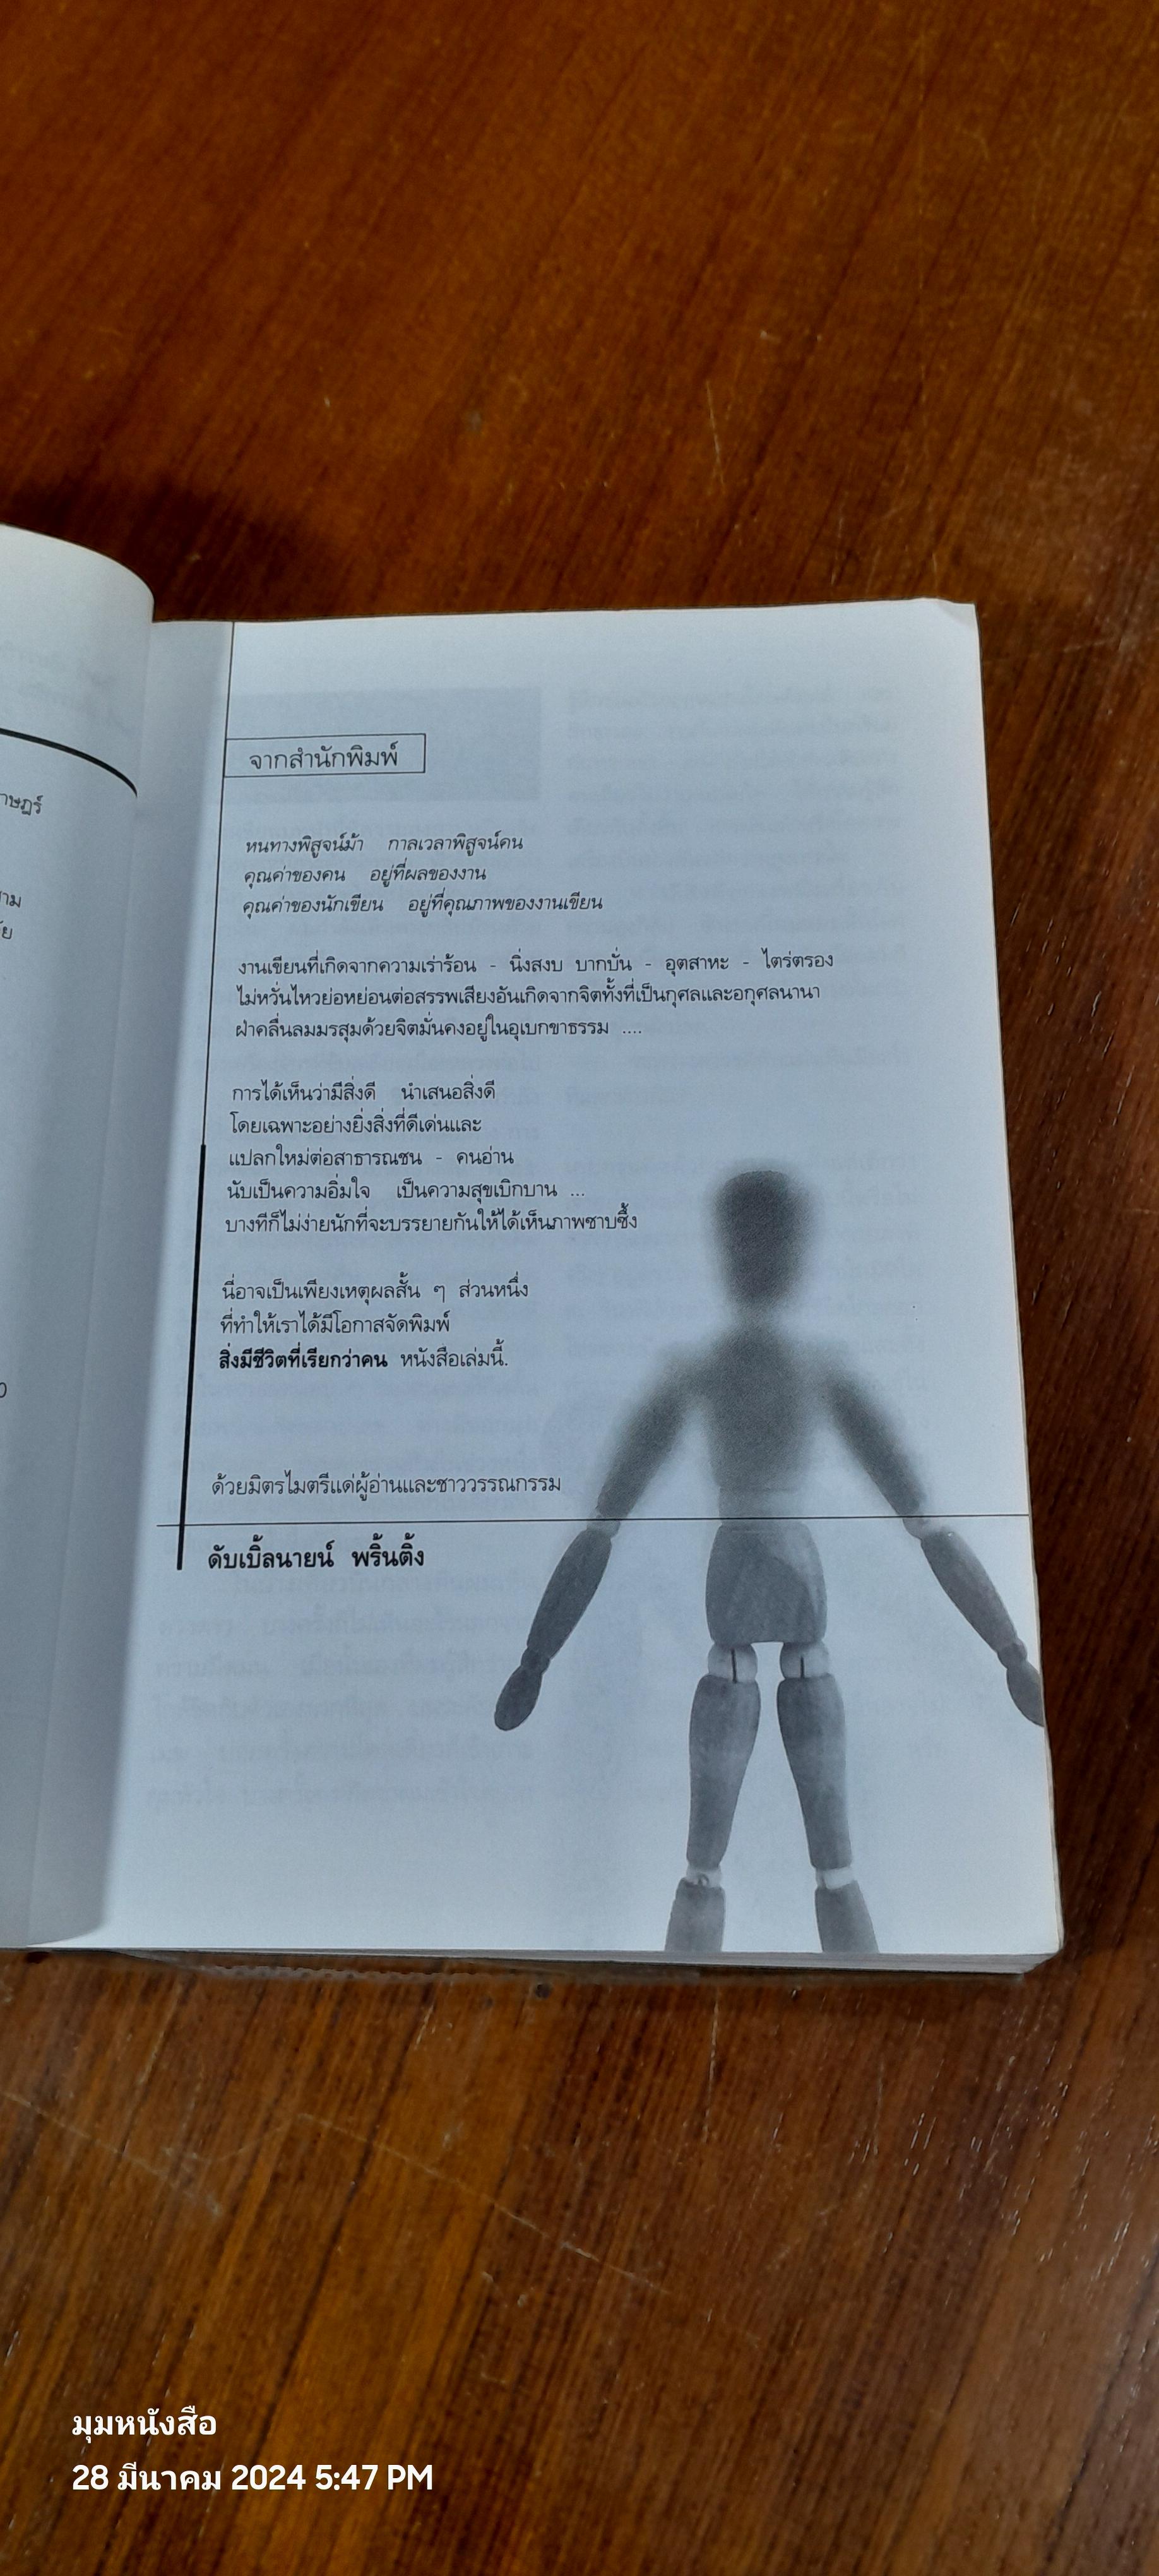 าษฎร์
จากสำนักพิมพ์
หนทางพิสูจน์ม้า กาลเวลาพิสูจน์คน
คุณค่าของคน อยู่ที่ผลของงาน
คุณค่าของนักเขียน อยู่ที่คุณภาพของงานเขียน
งานเขียนที่เกิดจากความเร่าร้อน - นิ่งสงบ บากบั่น - อุตสาหะ - ไตร่ตรอง
ไม่หวั่นไหวย่อหย่อนต่อสรรพเสียงอันเกิดจากจิตทั้งที่เป็นกุศลและอกุศลนานา
ฝ่าคลื่นลมมรสุมด้วยจิตมั่นคงอยู่ในอุเบกขาธรรม ....
การได้เห็นว่ามีสิ่งดี นำเสนอสิ่งดี
โดยเฉพาะอย่างยิ่งสิ่งที่ดีเด่นและ
แปลกใหม่ต่อสาธารณชน - คนอ่าน
นับเป็นความอิ่มใจ เป็นความสุขเบิกบาน ...
บางทีก็ไม่ง่ายนักที่จะบรรยายกันให้ได้เห็นภาพซาบซึ้ง
นี่อาจเป็นเพียงเหตุผลสั้น ๆ ส่วนหนึ่ง
ที่ทำให้เราได้มีโอกาสจัดพิมพ์
สิ่งมีชีวิตที่เรียกว่าคน หนังสือเล่มนี้.
ด้วยมิตรไมตรีแด่ผู้อ่านและชาววรรณกรรม
ดับเบิ้ลนายน์ พริ้นติ้ง
มุมหนังสือ
28 มีนาคม 2024 5:47 PM